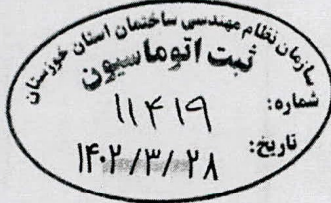 سازمان نظام مهندسی ساختمان استان خوزستان
ثبت اتوماسیون
شماره: ۱۱۴۱۹
تاریخ: ۱۴۰۲/۳/۲۸